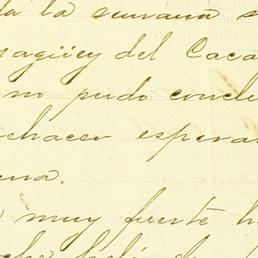 da la semana s
ragüey del Caca
no pudo conclu
chacer espera
ena.
muy fuerte h